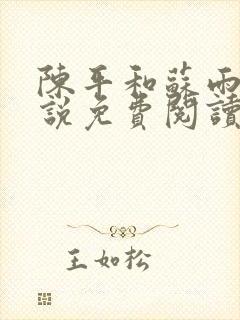 陳平和蘇雨
說免費閱讀
王如松